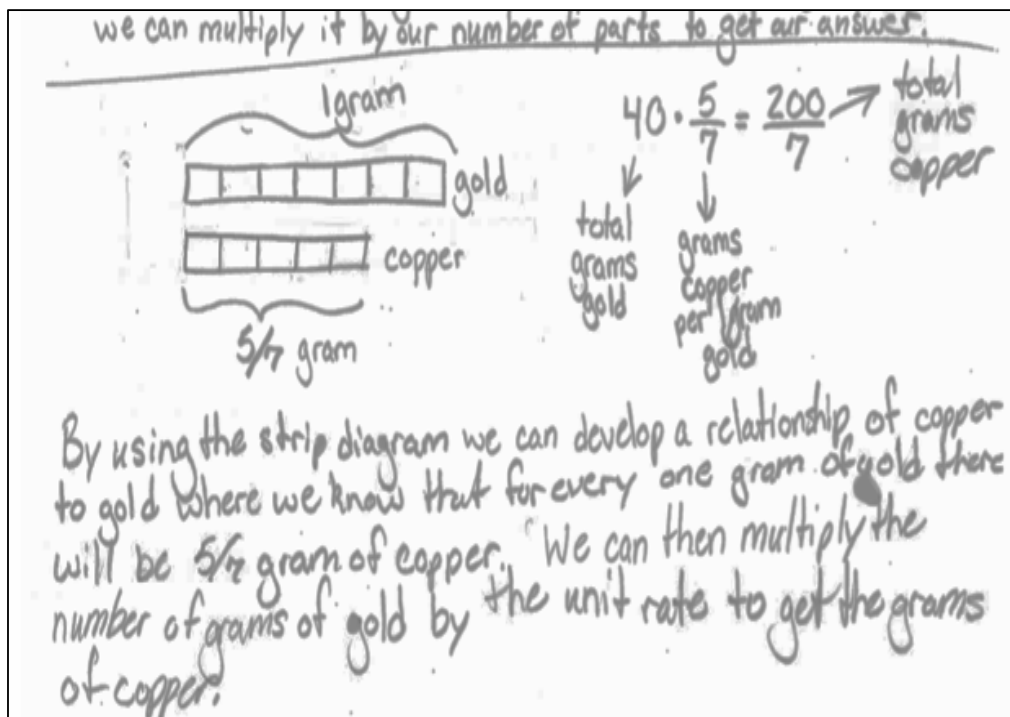 we can multiply it by our number of parts to get our answer.
1gram
gold
copper
5/7 gram
40 · 5/7 = 200/7
total
grams
copper
total
grams
gold
grams
copper
per 1gram
gold
By using the strip diagram we can develop a relationship of copper
to gold where we know that for every one gram of gold there
will be 5/7 gram of copper. We can then multiply the
number of grams of gold by the unit rate to get the grams
of copper.